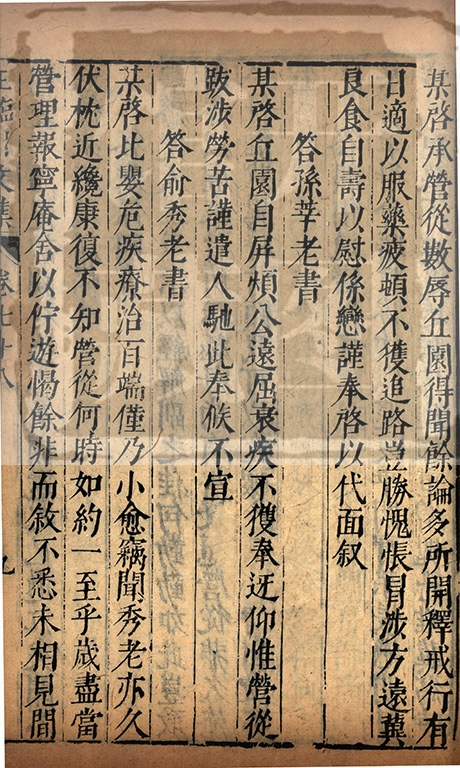 某啓承營從數辱丘園得聞餘論多所開釋戒行有
日適以服藥疲頓不獲追路豈勝愧悵冒涉方遠冀
良食自壽以慰係戀謹奉啓以代面叙
答孫莘老書
某啓丘園自屏煩公遠屈衰疾不獲奉迓仰惟營從
跋涉勞苦謹遣人馳此奉候不宣
答俞秀老書
某啓比嬰危疾療治百端僅乃小愈竊聞秀老亦久
伏枕近纔康復不知營從何時如約一至乎歲盡當
營理報寧庵舍以佇遊愒餘非面敘不悉未相見間
王臨川文集 卷七十八 九